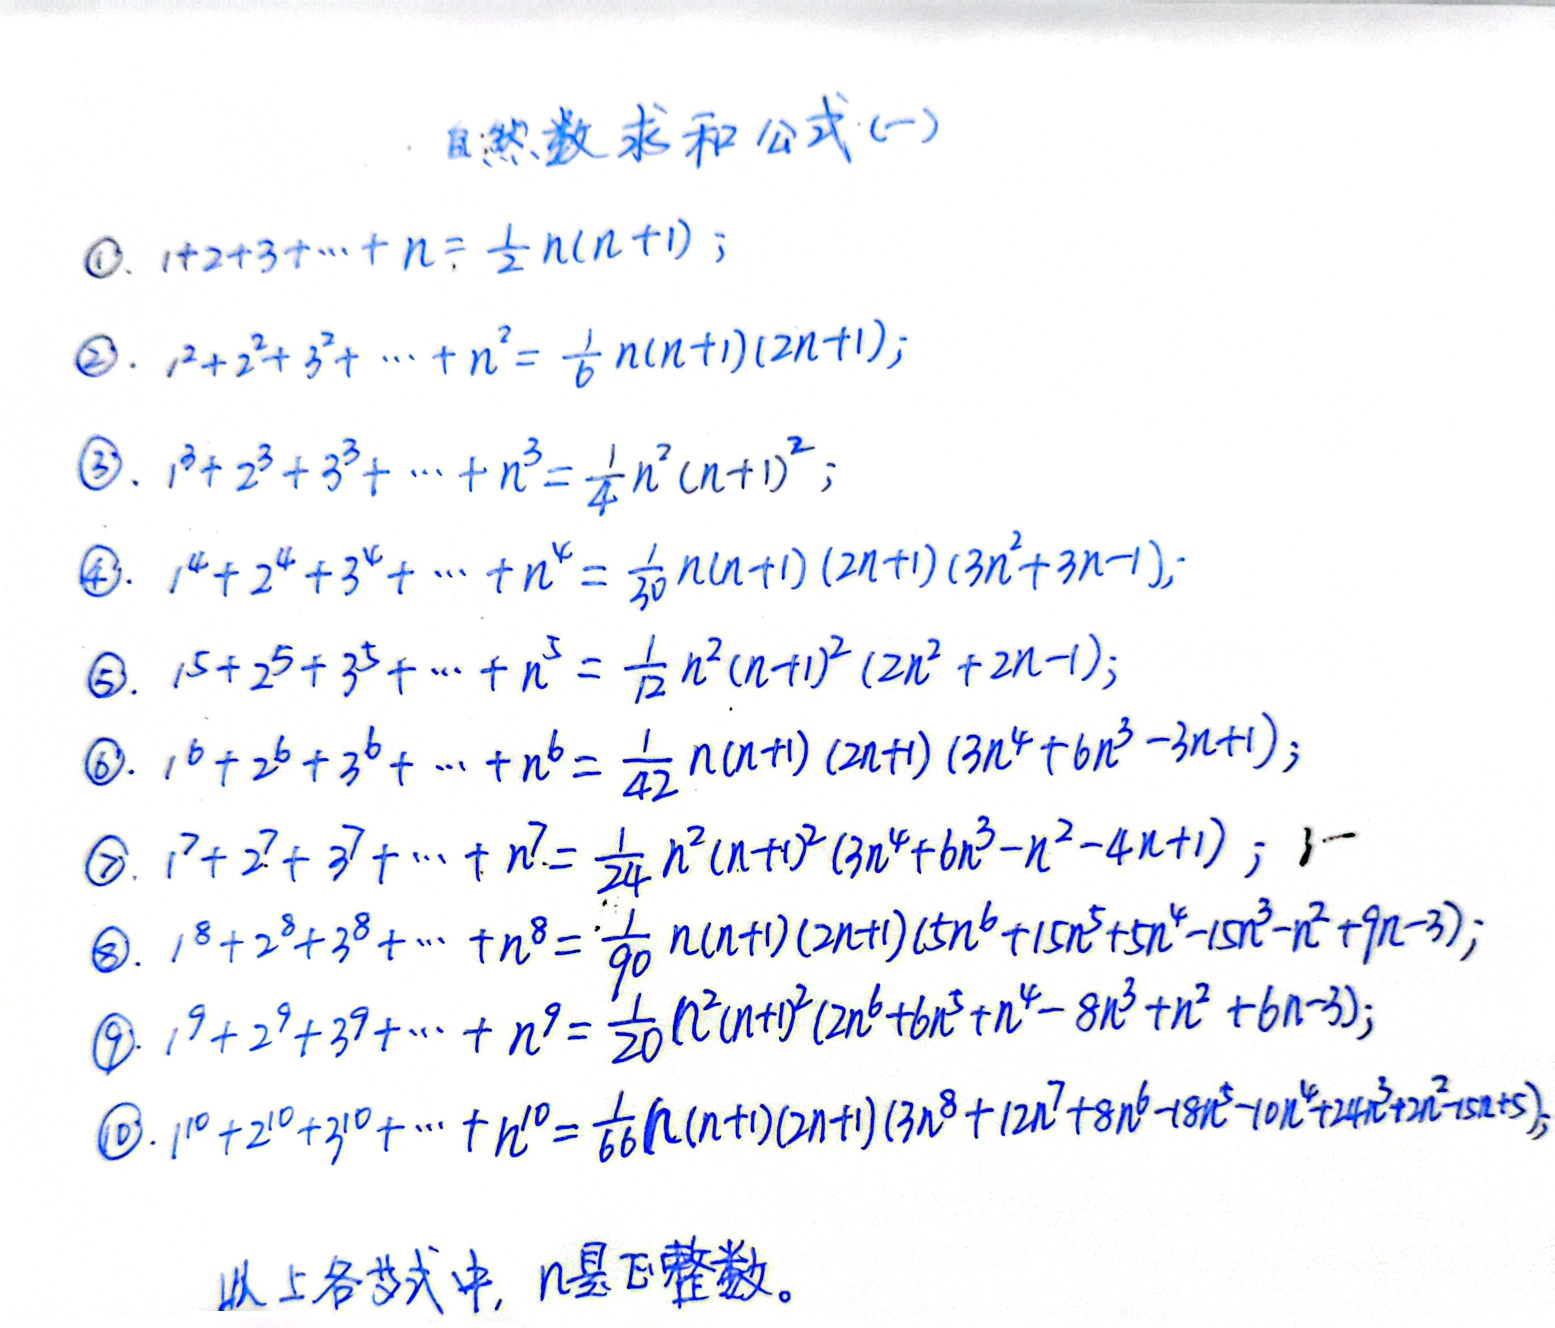 自然数求和公式(一)
①. 1+2+3+…+n=½n(n+1);
②. 1²+2²+3²+…+n²=1/6 n(n+1)(2n+1);
③. 1³+2³+3³+…+n³=1/4 n²(n+1)²;
④. 1⁴+2⁴+3⁴+…+n⁴=1/30 n(n+1)(2n+1)(3n²+3n-1);
⑤. 1⁵+2⁵+3⁵+…+n⁵=1/12 n²(n+1)²(2n²+2n-1);
⑥. 1⁶+2⁶+3⁶+…+n⁶=1/42 n(n+1)(2n+1)(3n⁴+6n³-3n+1);
⑦. 1⁷+2⁷+3⁷+…+n⁷=1/24 n²(n+1)²(3n⁴+6n³-n²-4n+1);
⑧. 1⁸+2⁸+3⁸+…+n⁸=1/90 n(n+1)(2n+1)(5n⁶+15n⁵+5n⁴-15n³-n²+9n-3);
⑨. 1⁹+2⁹+3⁹+…+n⁹=1/20 n²(n+1)²(2n⁶+6n⁵+n⁴-8n³+n²+6n-3);
⑩. 1¹⁰+2¹⁰+3¹⁰+…+n¹⁰=1/66 n(n+1)(2n+1)(3n⁸+12n⁷+8n⁶-18n⁵-10n⁴+24n³+2n²-15n+5);
以上各等式中, n是正整数。